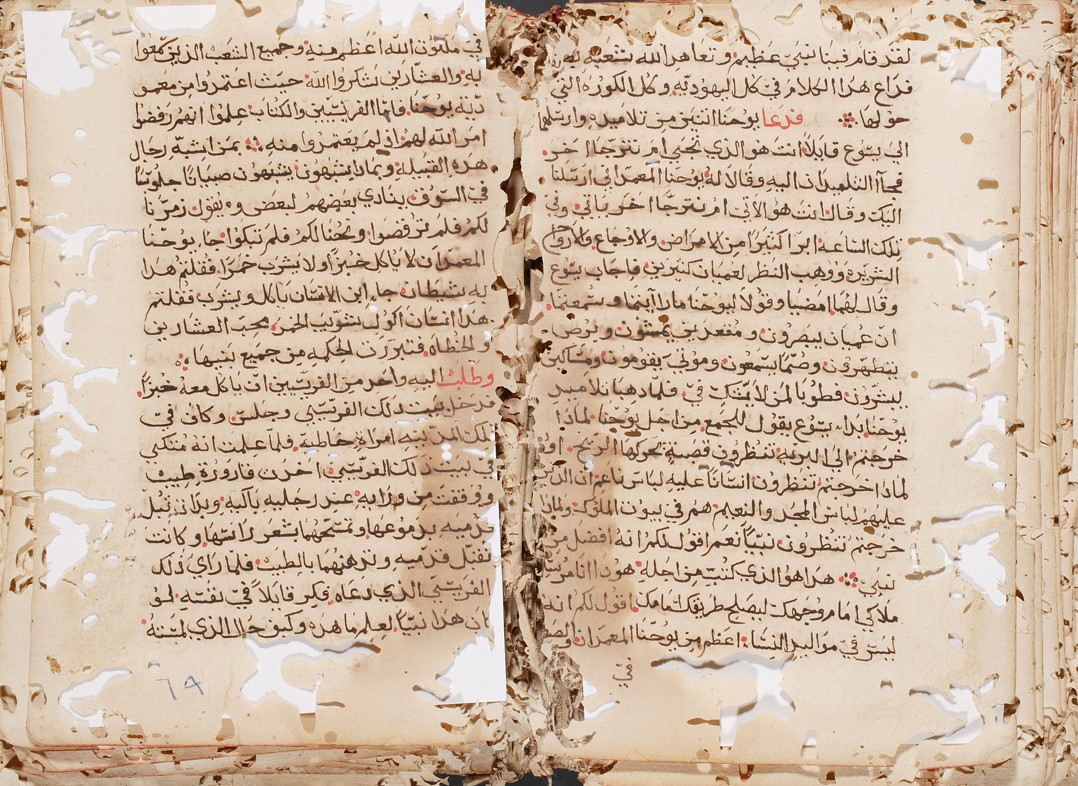 لقد قام فينا نبي عظيم وتعاهد الله شعبه
فذاع هذا الكلام في كل اليهوديه وكل الكوره التي
حولها فدعا يوحنا اثنين من تلاميذه وارسلهم
الى يسوع قايلا انت هو الذي تجي ام نترجا اخر
فجاآ التلميذان اليه وقالا له يوحنا المعمداني ارسلنا
اليك وقال انت هو الاتي ام نترجا اخر ياتي وفي
تلك الساعة ابرا كثيرا من الامراض والاوجاع والارواح
الشريره ووهب النظر لعميان كثيرين فاجاب يسوع
وقال لهما امضيا وقولا ليوحنا ما راآيتما وسمعتما
ان عميان يبصرون ومقعدين يمشون وبرص
يتطهرون وصما يسمعون وموتى يقومون ومساكين
يبشرون فطوبا لمن لا يشك في فلما ذهبا تلاميذ
يوحنا بدا يسوع يقول للجمع من اجل يوحنا لماذا
خرجتم الى البريه تنظرون قصبة تحركها الريح او
لماذا خرجتم تنظرون انسانا عليه لباس ناعم ان الذين
عليهم لباس المجد والنعيم هم في بيوت الملوك ولماذا
خرجتم تنظرون نبيا نعم اقول لكم انه افضل من
نبي هذا هو الذي كتبت من اجله هودا انا مرسل
ملاكي امام وجهك ليصلح طريقك امامك اقول لكم انه
ليس في مواليد النسا اعظم من يوحنا المعمدان والصغير
في
في ملكوت الله اعظم منه وجميع الشعب الذين سمعوا
له والعشارين شكروا الله حيث اعتمدوا من معمو
ديه يوحنا فاما الفريسيين والكتاب علموا انهم رفضوا
امر الله لهم اذ لم يعتمدوا منه بمن اشبه رجال
هذه القبيله وبماذا يشبهون يشبهون صبيانا جلوسا
في السوق ينادي بعضهم لبعض ويقول زمرنا
لكم فلم ترقصوا ونحنا لكم فلم تبكوا جا يوحنا
المعمدان لا ياكل خبزا ولا يشرب خمرا فقلتم هذا
به شيطان جا ابن الانسان ياكل ويشرب فقلتم
هذا انسان اكول شريب الخمر محب العشارين
والخطاه فتبررت الحكمه من جميع بنيها
وطلب اليه واحد من الفريسيين ان ياكل معه خبزا
فدخل بيت ذلك الفريسي وجلس وكان في
تلك المدينه امراه خاطيه فلما علمت انه متكي
في بيت ذلك الفريسي اخذت قارورة طيب
ووقفت من ورايه عند رجليه باكيه وبدات تبل
قدميه بدموعها وتمسحهما بشعر راسها وكانت
تقبل قدميه وتدهنهما بالطيب فلما راى ذلك
الفريسي الذي دعاه فكر قايلا في نفسه لو
ان هذا نبيا لعلم ما هذه وكيف حال الذي لمسته
٦٨